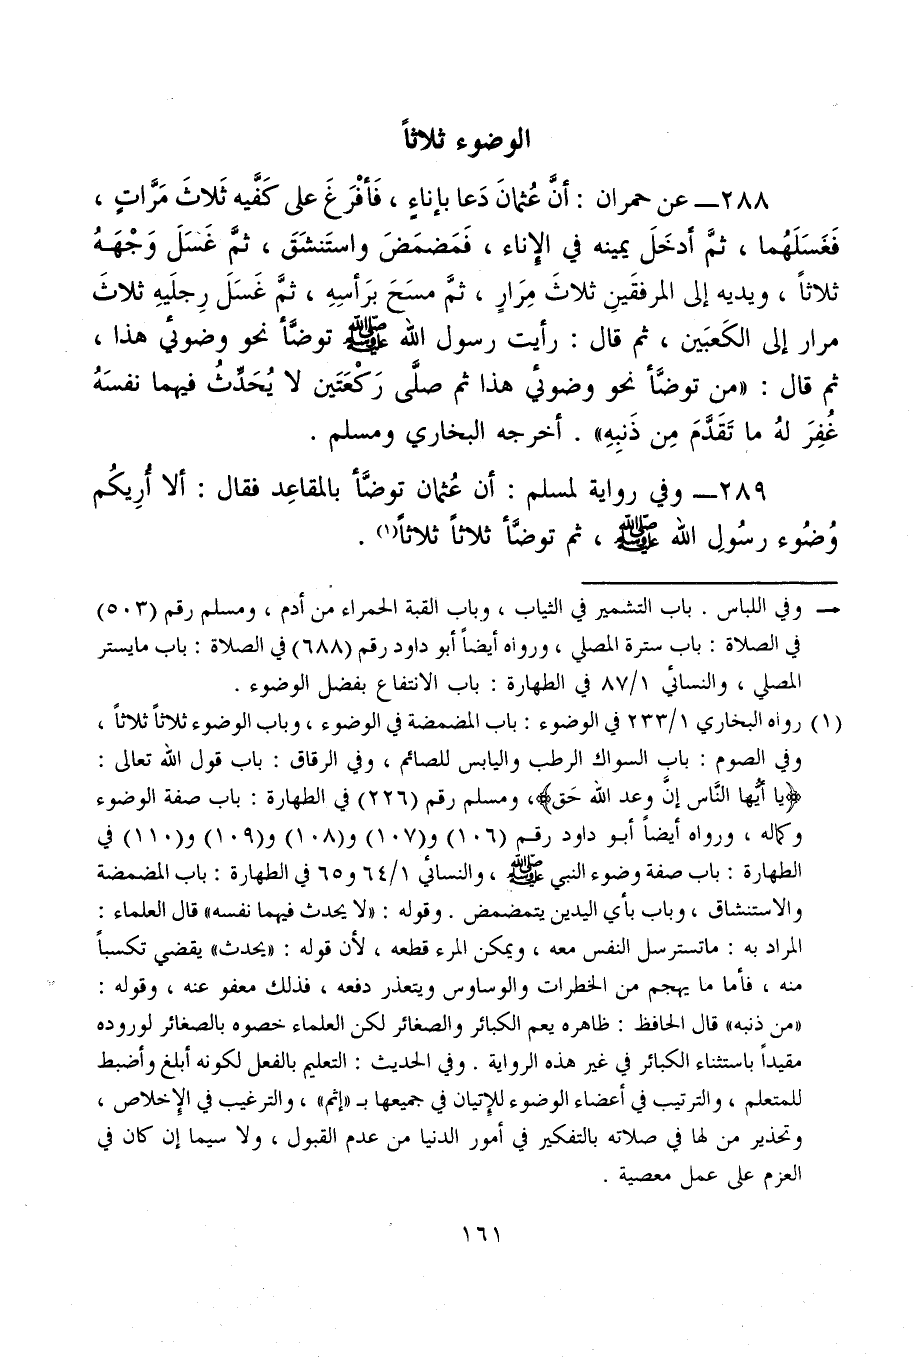 الوضوء ثلاثاً
٢٨٨ــ عن حمران : أنَّ عُثمانَ دَعا بإناءٍ ، فَأفْرَغَ على كَفَّيه ثَلاثَ مَرَّاتٍ ،
فَغَسَلَهُما ، ثمَّ أدخَلَ يمينه في الإناء ، فَمَضمَضَ واستَنشَقَ ، ثمَّ غَسَلَ وَجْهَـهُ
ثلاثاً ، ويديه إلى المرفقَينِ ثلاثَ مِرَارٍ ، ثمَّ مسَحَ بَرأسِهِ ، ثمَّ غَسَلَ رِجلَيهِ ثلاثَ
مرار إلى الكَعبَين ، ثم قال : رأيت رسول الله ﷺ توضَّأ نحو وضوئي هذا ،
ثم قال : «من توضَّأ نحو وضوئي هذا ثم صلَّى رَكْعَتَين لا يُحَدِّثُ فيهما نفسَهُ
غُفِرَ لهُ ما تَقَدَّمَ مِن ذَنبِهِ» . أخرجه البخاري ومسلم .
٢٨٩ــ وفي رواية لمسلم : أن عُثمان توضَّأ بالمقاعِد فقال : ألا أُرِيكُم
وُضُوء رسُولِ الله ﷺ ، ثم توضَّأ ثلاثاً ثلاثاً(١) .
← وفي اللباس . باب التشمير في الثياب ، وباب القبة الحمراء من أدم ، ومسلم رقم (٥٠٣)
في الصلاة : باب سترة المصلي ، ورواه أيضاً أبو داود رقم (٦٨٨) في الصلاة : باب مايستر
المصلي ، والنسائي ٨٧/١ في الطهارة : باب الانتفاع بفضل الوضوء .
(١) رواه البخاري ٢٣٣/١ في الوضوء : باب المضمضة في الوضوء ، وباب الوضوء ثلاثاً ثلاثاً ،
وفي الصوم : باب السواك الرطب واليابس للصائم ، وفي الرقاق : باب قول الله تعالى :
﴿يا أيُّها النَّاس إنَّ وعد الله حَق﴾، ومسلم رقم (٢٢٦) في الطهارة : باب صفة الوضوء
وكماله ، ورواه أيضاً أبـو داود رقـم (١٠٦) و(١٠٧) و(١٠٨) و(١٠٩) و(١١٠) في
الطهارة : باب صفة وضوء النبي ﷺ ، والنسائي ٦٤/١ و٦٥ في الطهارة : باب المضمضة
والاستنشاق ، وباب بأي اليدين يتمضمض . وقوله : «لا يحدث فيهما نفسه» قال العلماء :
المراد به : ماتسترسل النفس معه ، ويمكن المرء قطعه ، لأن قوله : «يحدث» يقضي تكسباً
منه ، فأما ما يهجم من الخطرات والوساوس ويتعذر دفعه ، فذلك معفو عنه ، وقوله :
«من ذنبه» قال الحافظ : ظاهره يعم الكبائر والصغائر لكن العلماء خصوه بالصغائر لوروده
مقيداً باستثناء الكبائر في غير هذه الرواية . وفي الحديث : التعليم بالفعل لكونه أبلغ وأضبط
للمتعلم ، والترتيب في أعضاء الوضوء للإتيان في جميعها بـ «إثم» ، والترغيب في الإخلاص ،
وتحذير من لها في صلاته بالتفكير في أمور الدنيا من عدم القبول ، ولا سيما إن كان في
العزم على عمل معصية .
١٦١